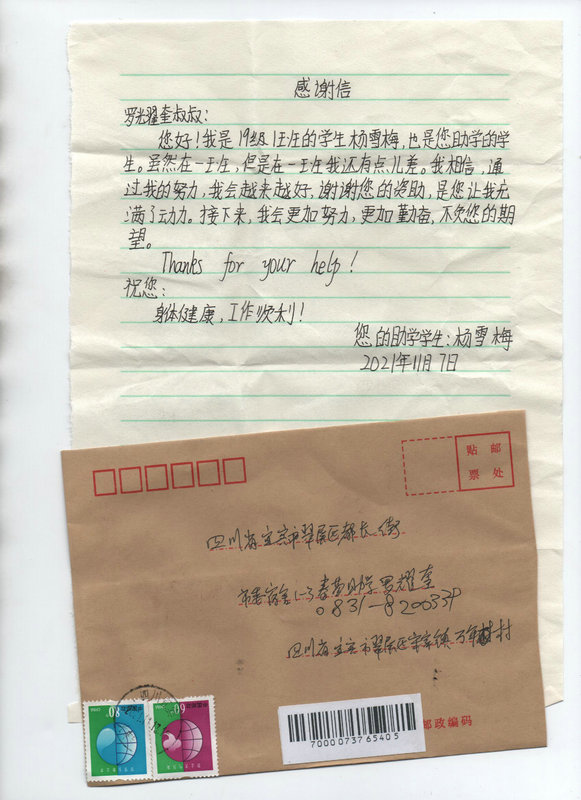 感谢信
罗光耀奎叔叔：
您好！我是19级1班的学生杨雪梅，也是您助学的学
生。虽然在一班，但是在一班我还有点儿差。我相信，通
过我的努力，我会越来越好，谢谢您的资助，是您让我充
满了动力。接下来，我会更加努力，更加勤奋，不负您的期
望。
Thanks for your help!
祝您：
身体健康，工作顺利！
您的助学学生：杨雪梅
2021年11月7日
贴 邮
票 处
四川省宜宾市翠屏区都长街
市委宿舍 春苗助学 罗耀奎
0831-8200339
四川省宜宾市翠屏区宋家镇万年村
四川
80
60
7000073765405
邮政编码